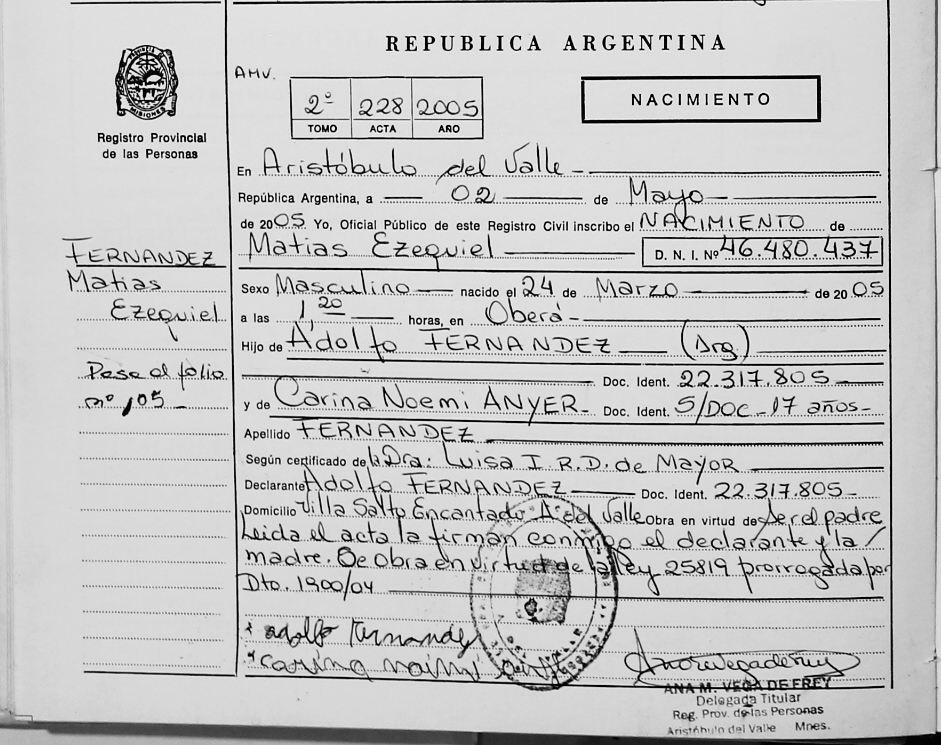 REPUBLICA ARGENTINA
PROVINCIA DE MISIONES
Registro Provincial
de las Personas
AMV.
2º 228 2005
TOMO ACTA AÑO
NACIMIENTO
En Aristóbulo del Valle
República Argentina, a 02 de Mayo
de 2005 Yo, Oficial Público de este Registro Civil inscribo el NACIMIENTO de
Matias Ezequiel D. N. I. Nº 46.480.437
FERNANDEZ
Matias
Ezequiel
Pase al folio
nº 105
Sexo Masculino nacido el 24 de Marzo de 2005
a las 1,20 horas, en Oberá
Hijo de Adolfo FERNANDEZ (Arg)
Doc. Ident. 22.317.805
y de Carina Noemi ANYER Doc. Ident. S/DOC - 17 años
Apellido FERNANDEZ
Según certificado de la Dra: Luisa I. R. D. de Mayor
Declarante Adolfo FERNANDEZ Doc. Ident. 22.317.805
Domicilio Villa Salto Encantado A. del Valle Obra en virtud de Ser el padre
Leida el acta la firman conmigo el declarante y la /
madre. Se obra en virtud de la ley 25819 prorrogada por
Dto. 1900/04
adolfo Fernandez
carina
ANA M. VEGA DE FREY
Delegada Titular
Reg. Prov. de las Personas
Aristóbulo del Valle Mnes.